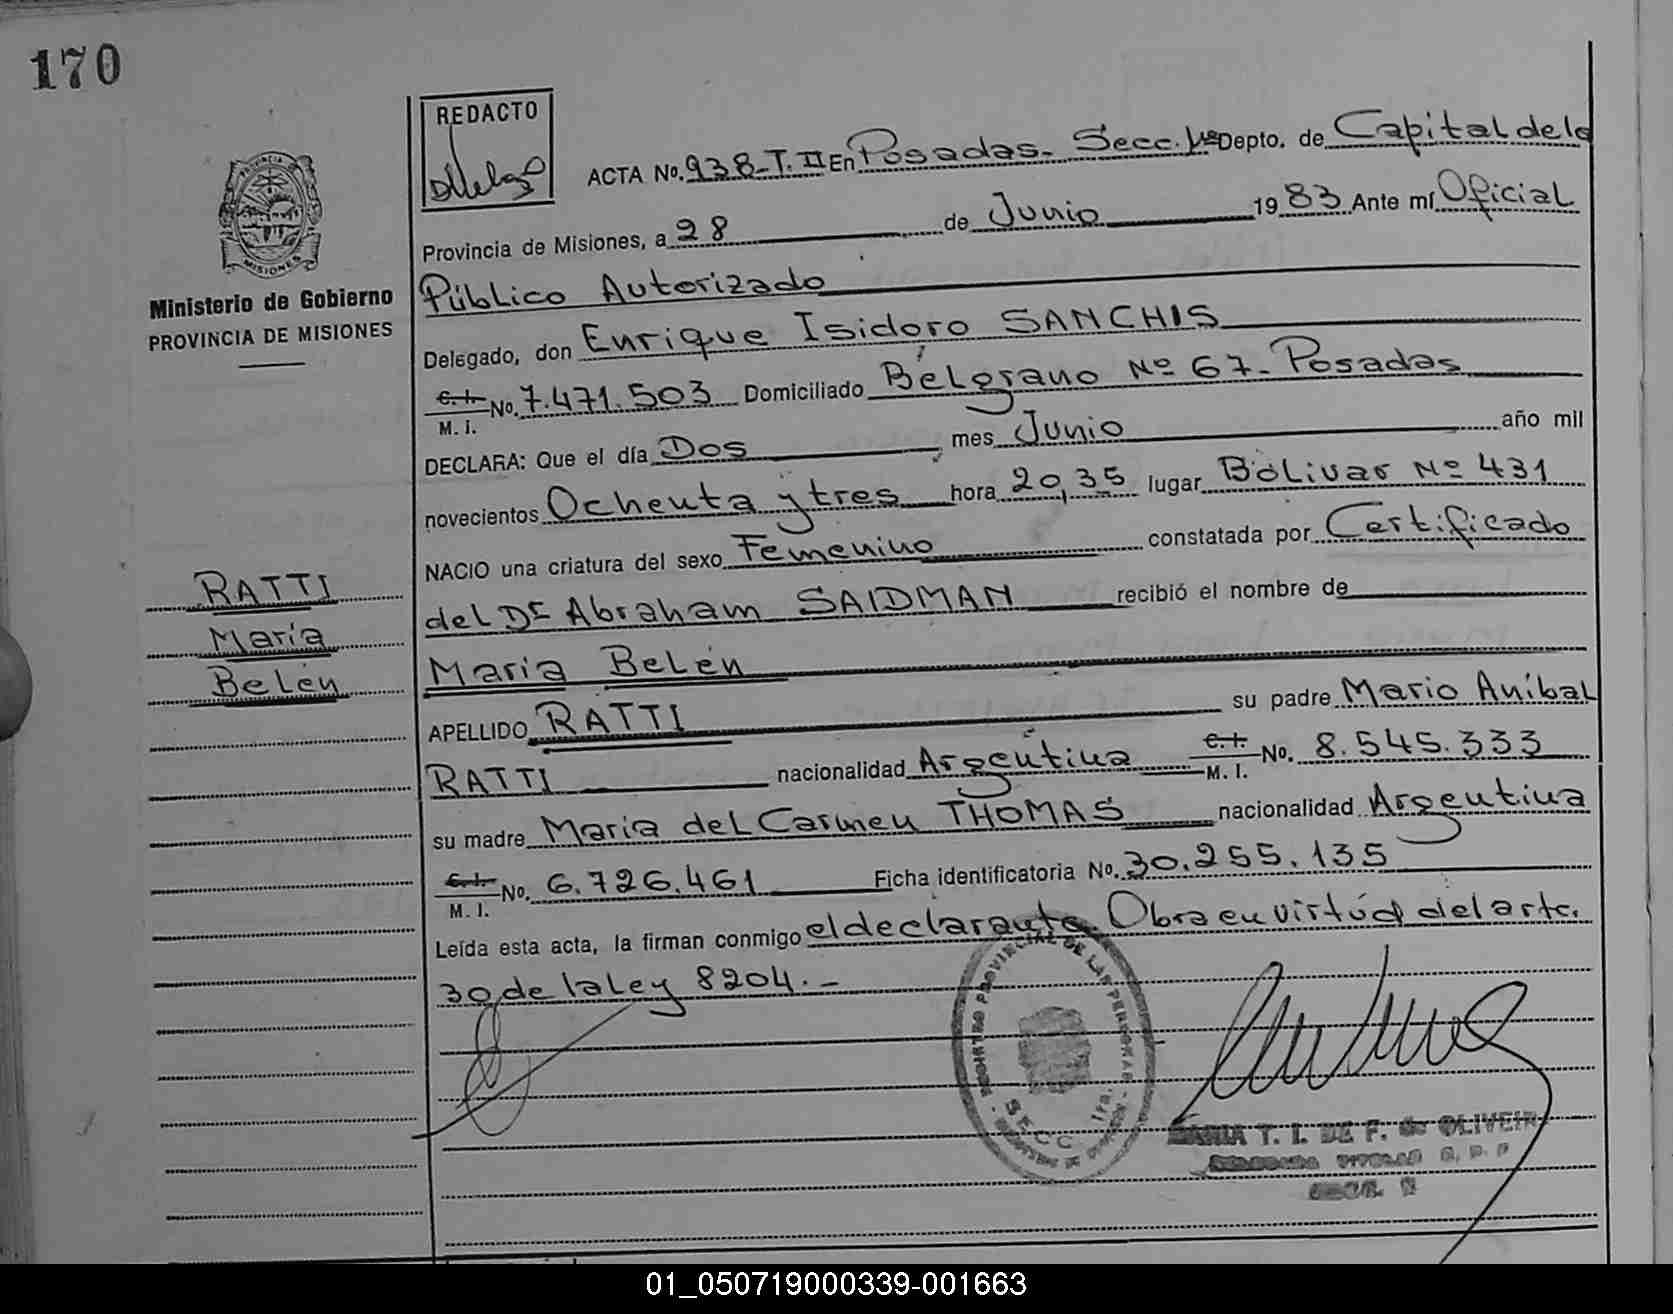 170
REDACTO
ACTA No. 938-T. II En Posadas- Secc. 1ra Depto. de Capital de la
Provincia de Misiones, a 28 de Junio 1983 Ante mí Oficial
Público Autorizado
Delegado, don Enrique Isidoro SANCHIS
C. I. No. 7.471.503 Domiciliado Belgrano Nº 67- Posadas
M. I.
DECLARA: Que el día Dos mes Junio año mil
novecientos Ochenta y tres hora 20,35 lugar Bolivar Nº 431
NACIO una criatura del sexo Femenino constatada por Certificado
del Dr Abraham SAIDMAN recibió el nombre de
María Belén
APELLIDO RATTI su padre Mario Aníbal
RATTI nacionalidad Argentina C. I. M. I. No. 8.545.333
su madre Maria del Carmen THOMAS nacionalidad Argentina
C. I. No. 6.726.461 Ficha identificatoria No. 30.255.135
M. I.
Leída esta acta, la firman conmigo el declarante. Obra en virtúd del artc.
30 de la ley 8204.-
PROVINCIA
MISIONES
Ministerio de Gobierno
PROVINCIA DE MISIONES
RATTI
María
Belén
REGISTRO PROVINCIAL DE LAS PERSONAS
SECC. 1ra.
MARIA T. I. DE F. de OLIVEIRA
01_050719000339-001663